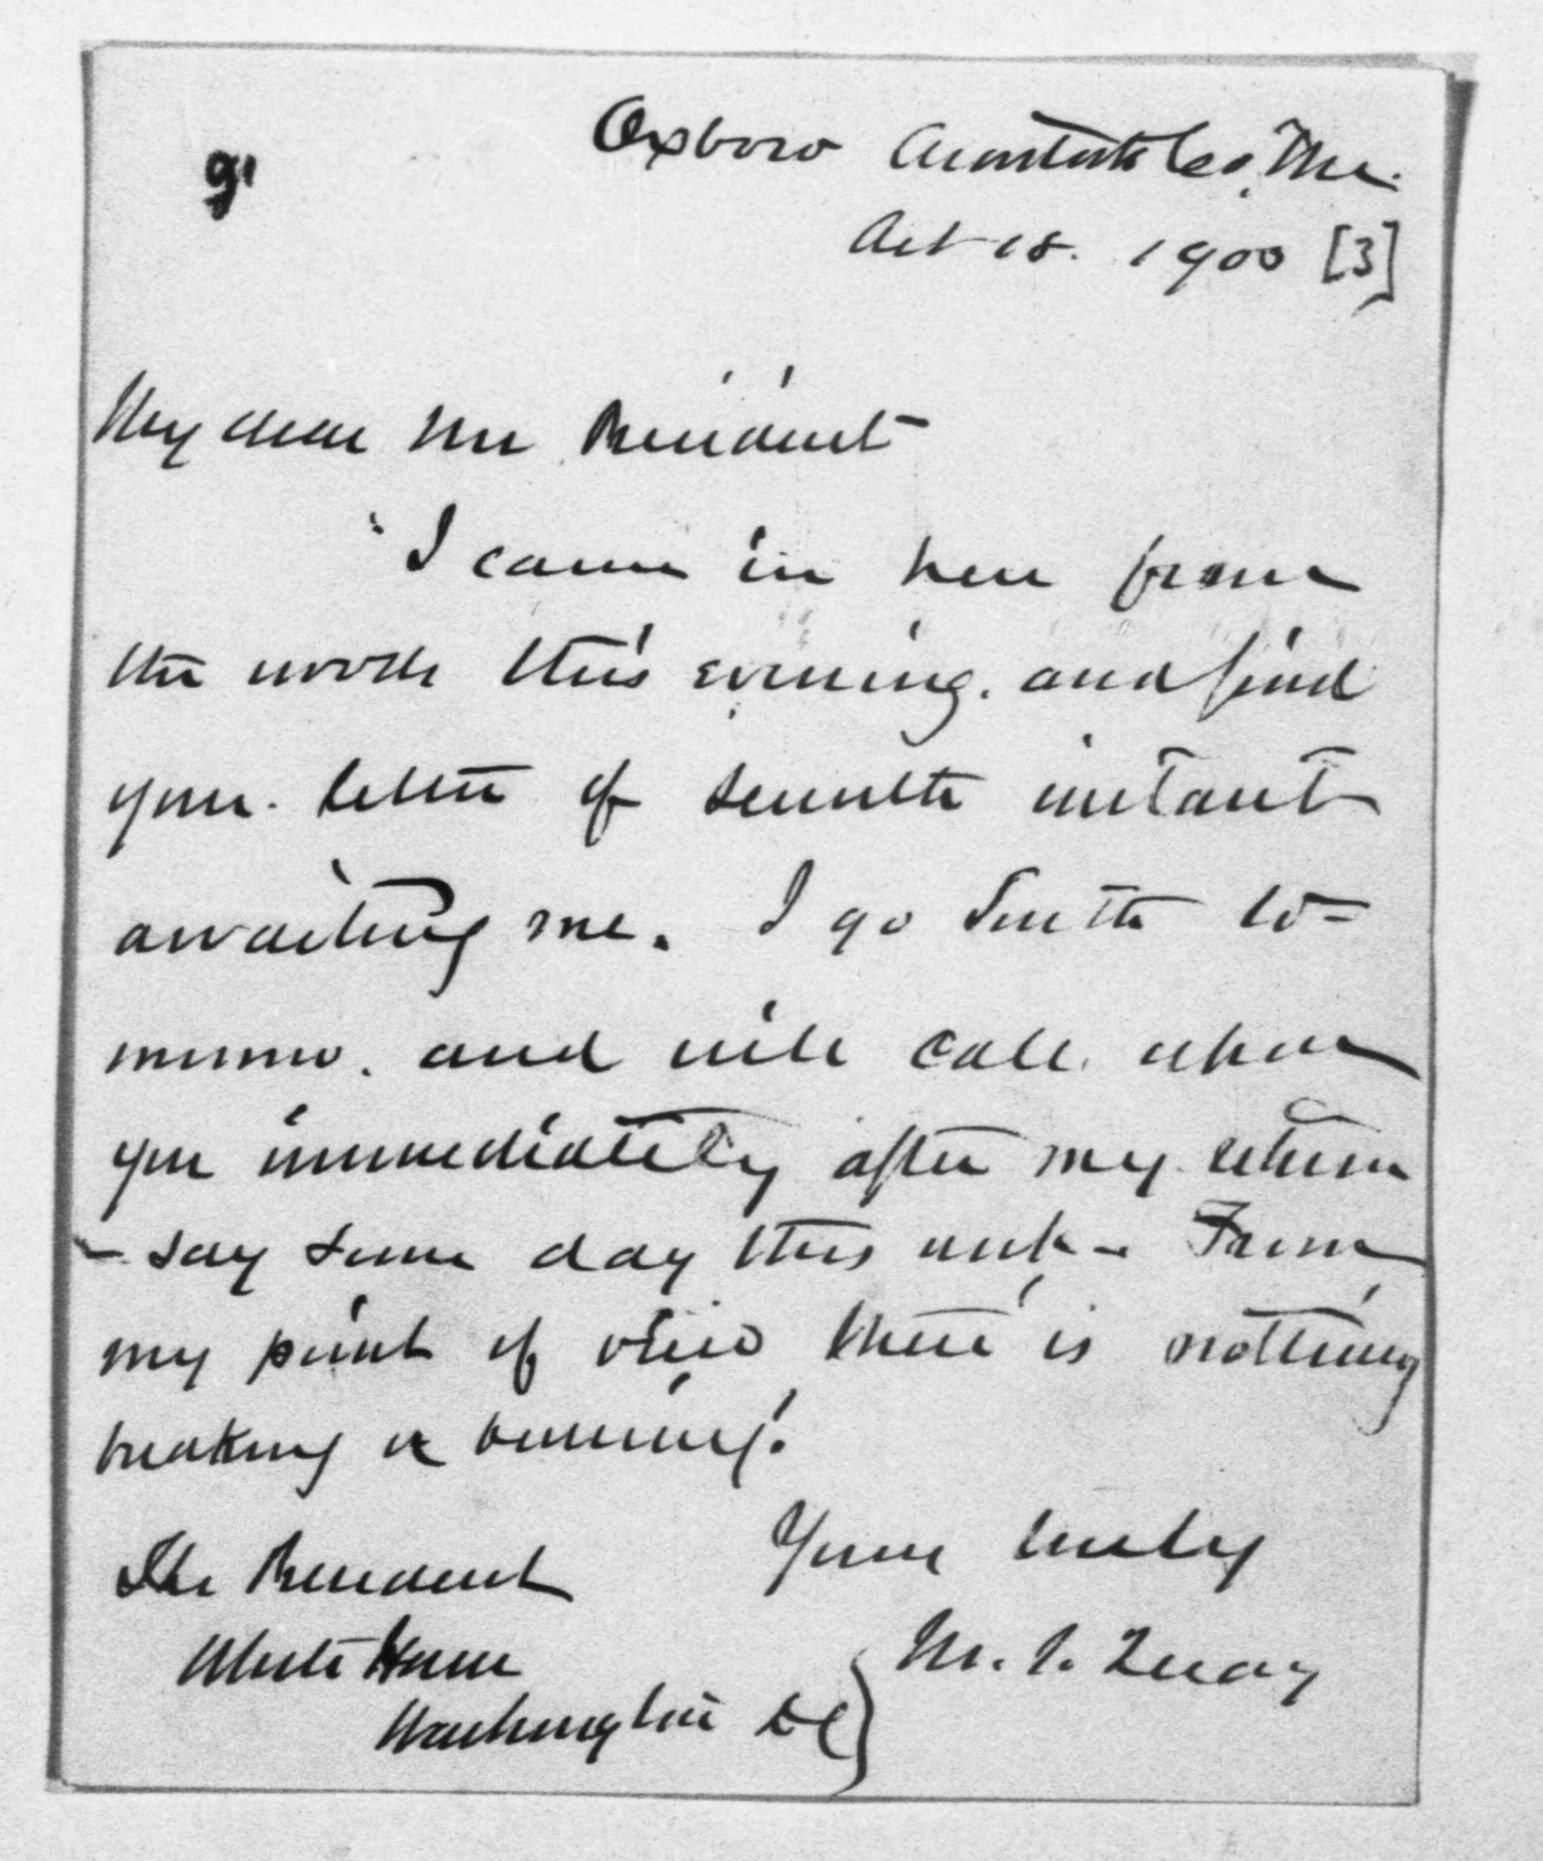 g'
Oxbow Aroostook Co, Me.
Oct 18. 1900 [3]
My dear Mr President
I came in here from
the woods this evening. and find
your letter of seventh instant
awaiting me. I go South to-
morrow. and will call upon
you immediately after my return
- say some day this week - From
my point of view there is nothing
breaking or burning.
Yours truly
The President
M. S. Quay
White House
Washington DC